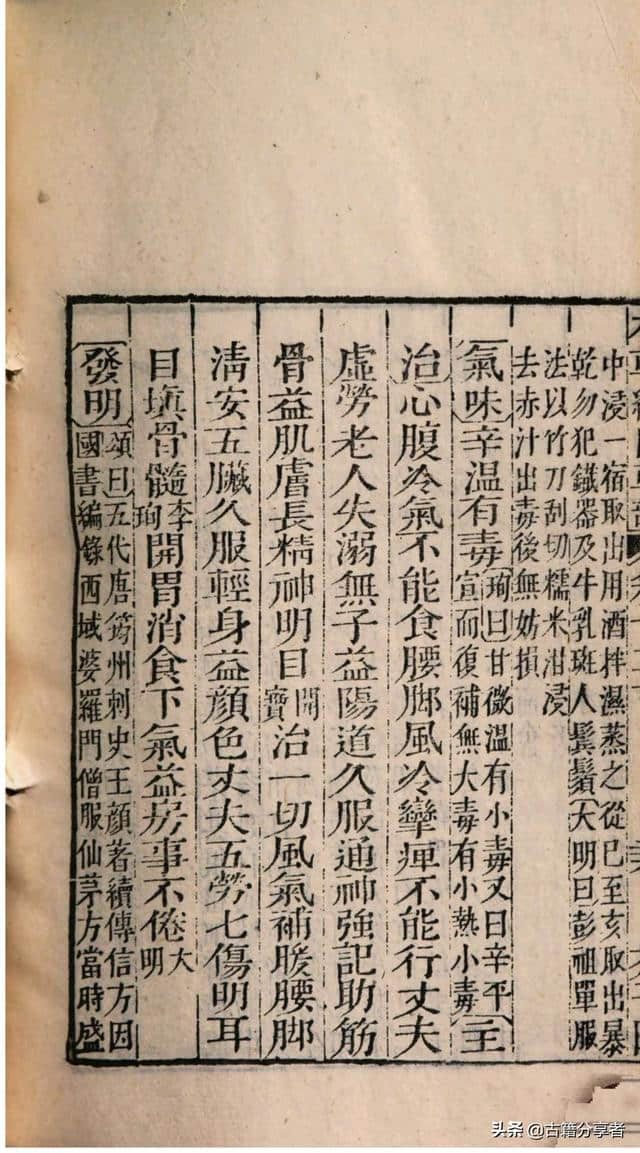 中浸一宿取出用酒拌濕蒸之從巳至亥取出暴
乾勿犯鐵器及牛乳斑人鬢鬚〔大明曰彭祖單服
法以竹刀刮切糯米泔浸
去赤汁出毒後無妨損
〔氣味〕辛溫有毒
珣曰〕甘微溫有小毒又曰辛平
宣而復補無大毒有小熱小毒
〔主
治〕心腹冷氣不能食腰脚風冷攣痺不能行丈夫
虛勞老人失溺無子益陽道久服通神強記助筋
骨益肌膚長精神明目
開
寶
治一切風氣補暖腰脚
清安五臟久服輕身益顏色丈夫五勞七傷明耳
目填骨髓
李
珣
開胃消食下氣益房事不倦
大
明
〔發明〕
頌曰〕五代唐筠州刺史王顏著續傳信方因
國書編錄西域婆羅門僧服仙茅方當時盛
头条 @古籍分享者